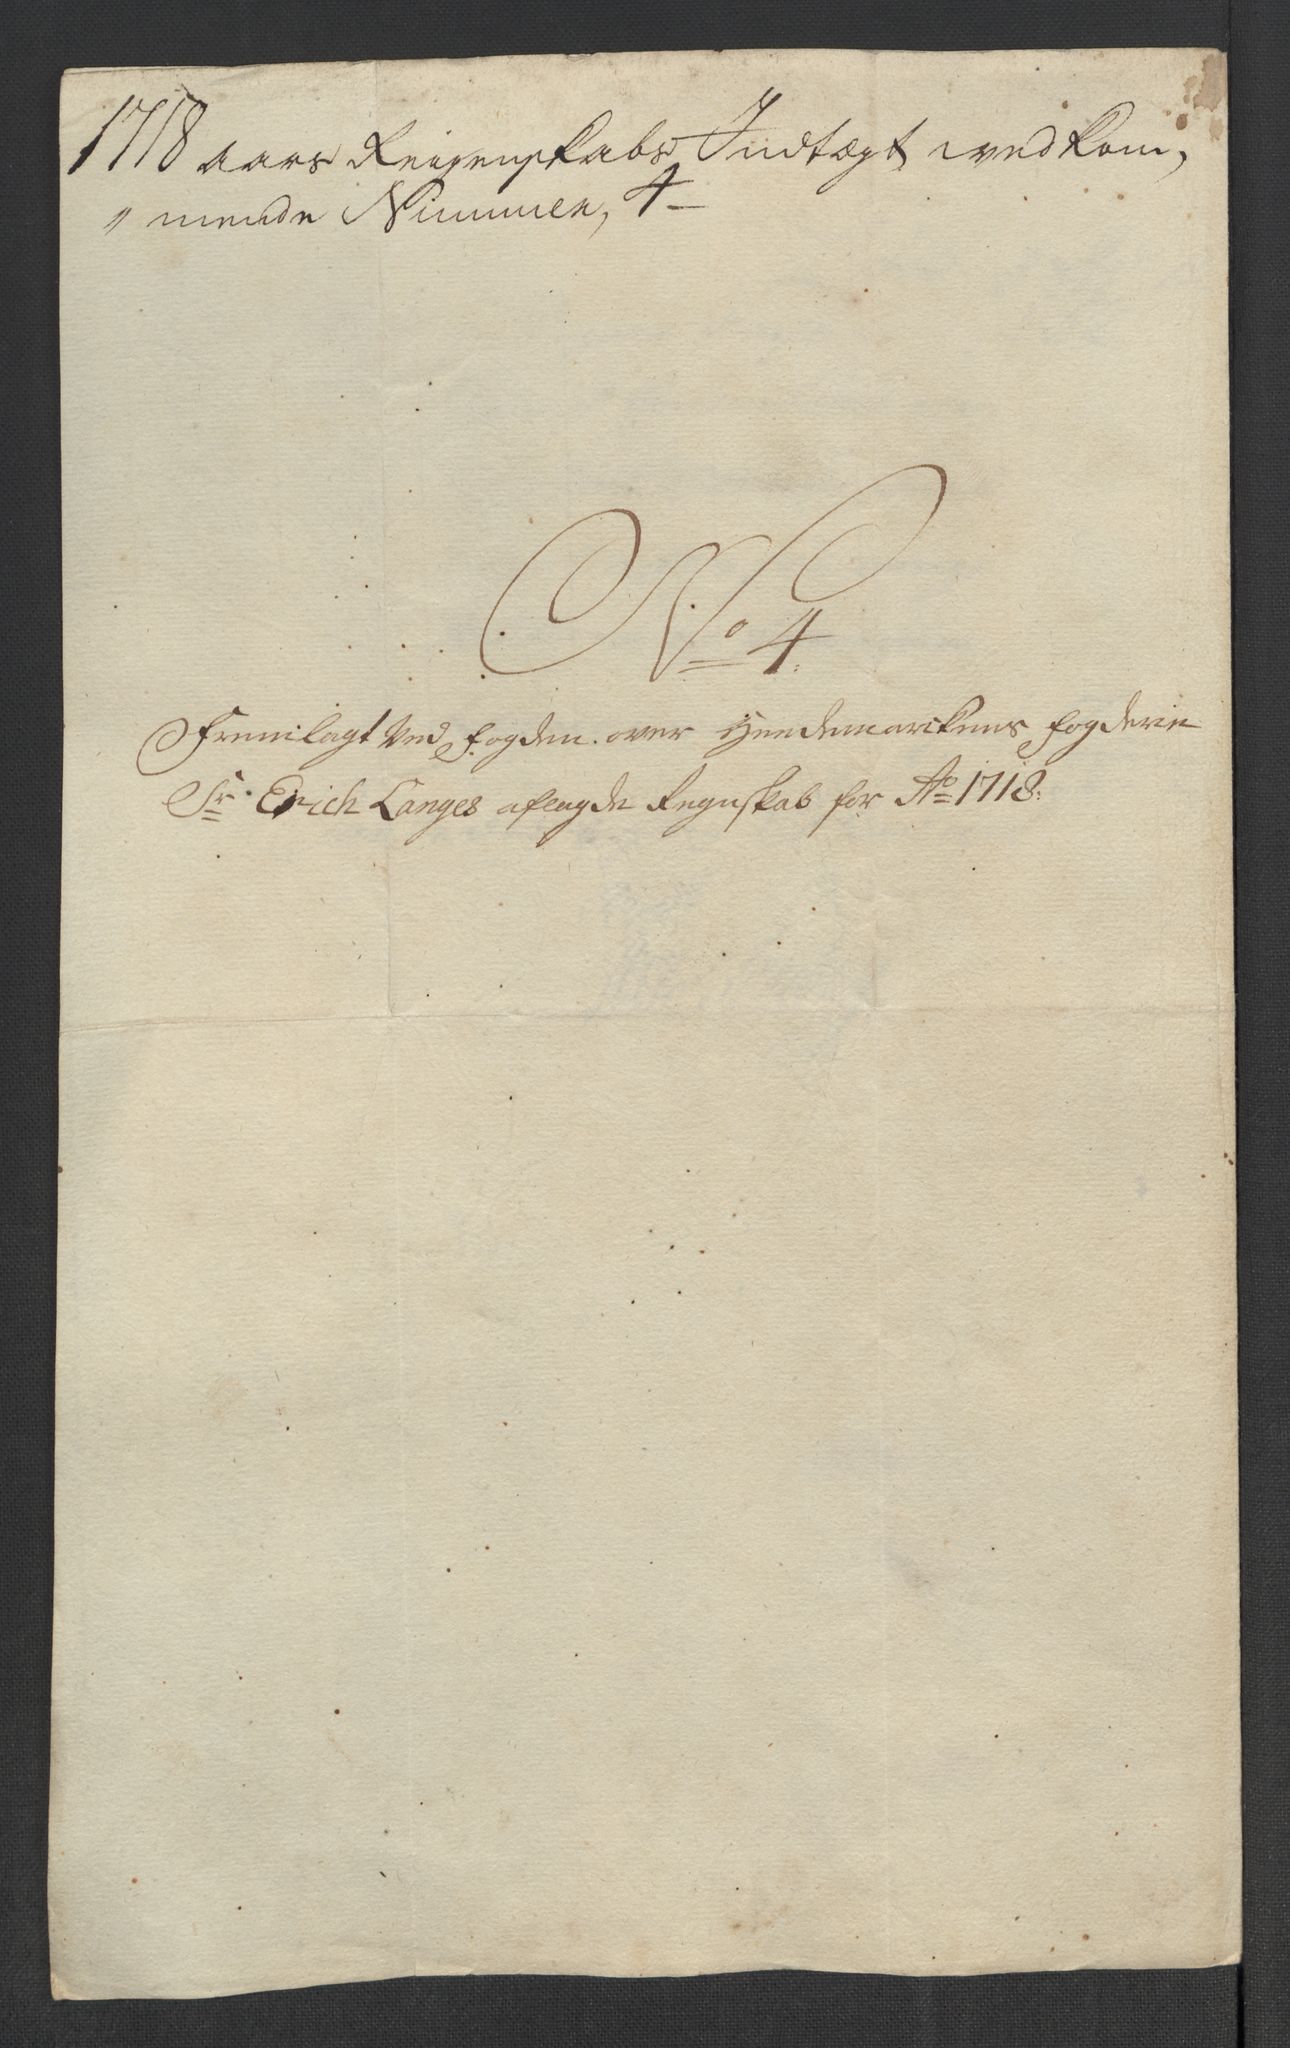 1718 aars Reigenskabs Indtægt vedkom,
" mende Nummer, 4
No 4.
Fremlagt Ved fogden over Heedemarckens fogderie
Sr. Erich Langes aflagde Regnskab for Ao 1718.